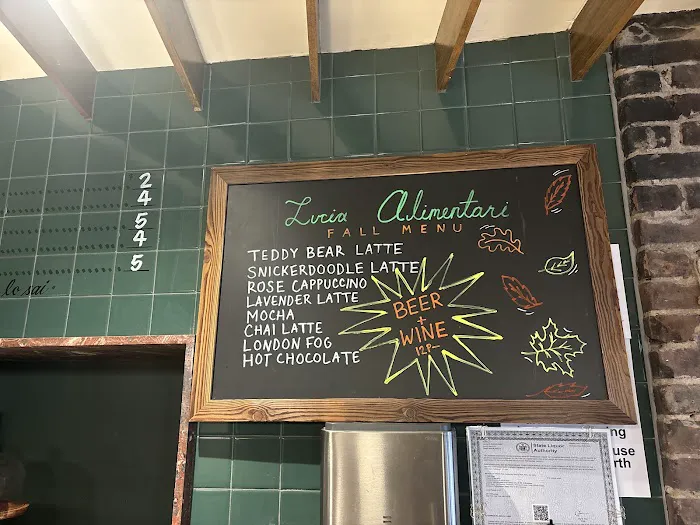 2
4
5
4
5
lo sai.
Lucia Alimentari
FALL MENU
TEDDY BEAR LATTE
SNICKERDOODLE LATTE
ROSE CAPPUCINO
LAVENDER LATTE
MOCHA
CHAI LATTE
LONDON FOG
HOT CHOCOLATE
BEER
+
WINE
12P-
State Liquor
Authority
ng
use
rth